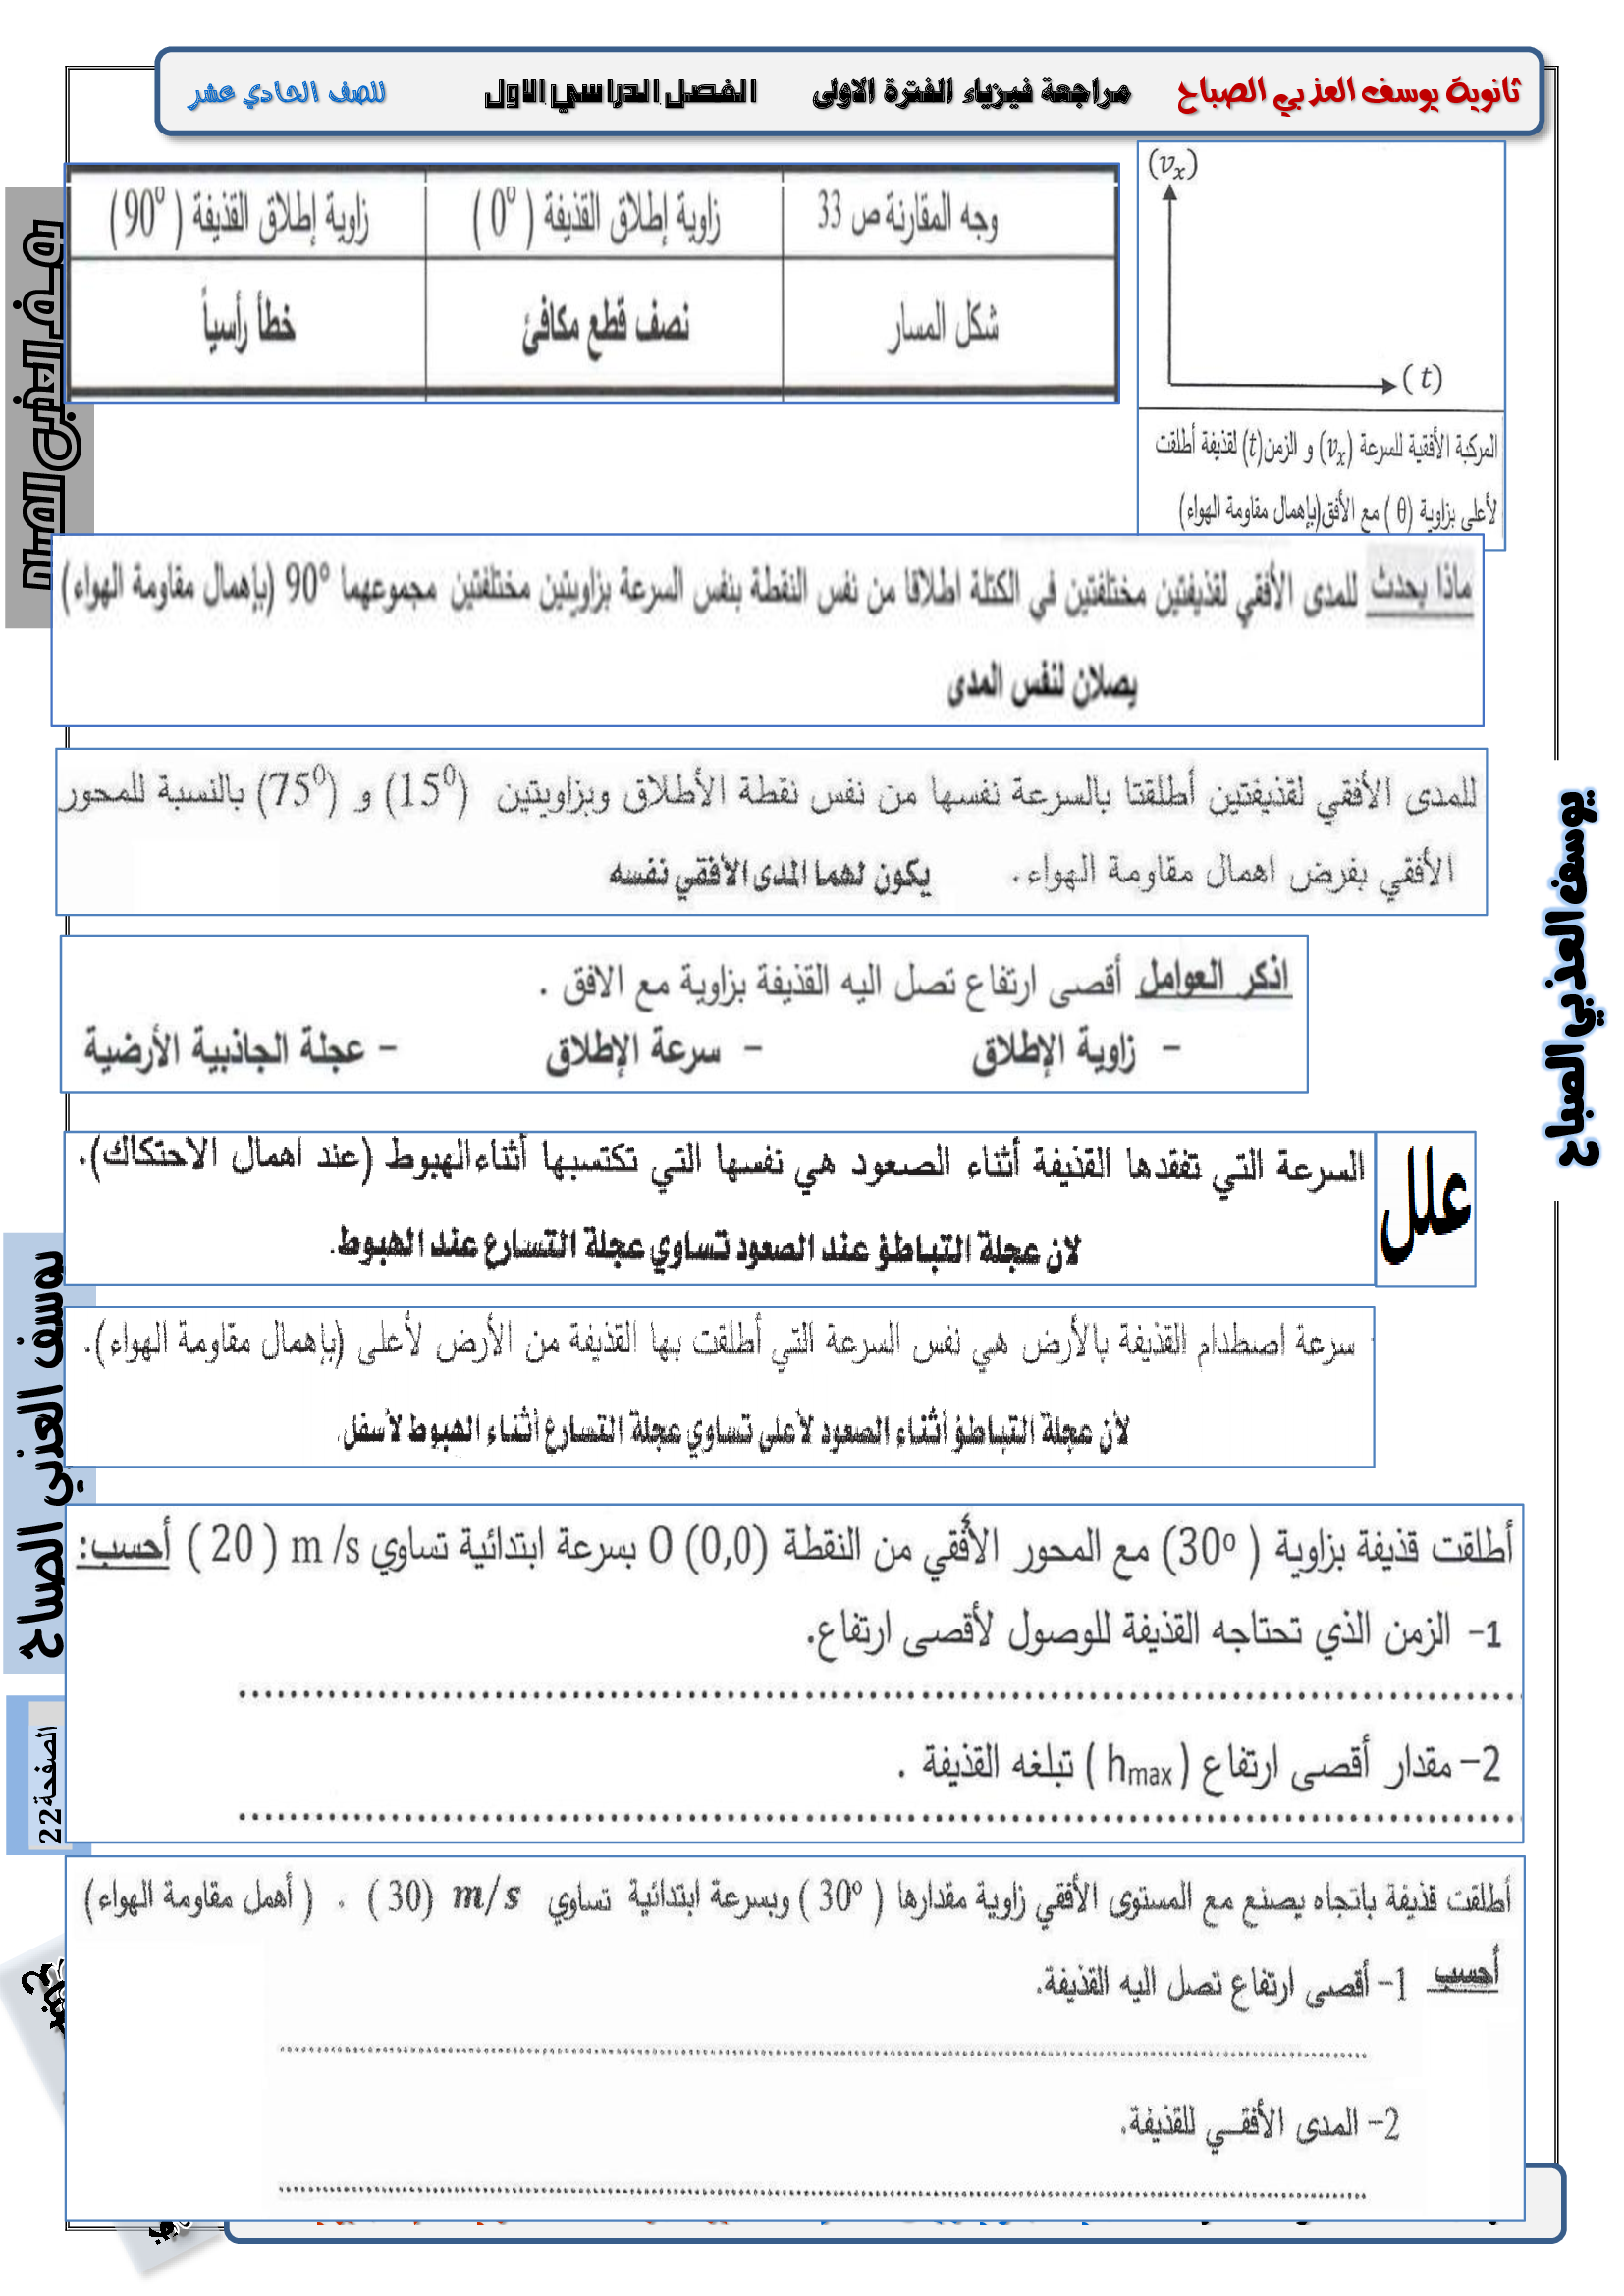 ثانوية يوسف العذبي الصباح مراجعة فيزياء الفترة الاولى الفصل الدراسي الاول للصف الحادي عشر
(vₓ)
(t)
المركبة الأفقية للسرعة (vₓ) و الزمن(t) لقذيفة أطلقت
لأعلى بزاوية (θ) مع الأفق(بإهمال مقاومة الهواء)
وجه المقارنة ص 33 زاوية إطلاق القذيفة (0⁰) زاوية إطلاق القذيفة (90⁰)
شكل المسار نصف قطع مكافئ خطأ رأسياً
ماذا يحدث للمدى الأفقي لقذيفتين مختلفتين في الكتلة اطلاقا من نفس النقطة بنفس السرعة بزاويتين مختلفتين مجموعهما 90° (بإهمال مقاومة الهواء)
يصلان لنفس المدى
للمدى الأفقي لقذيفتين أطلقتا بالسرعة نفسها من نفس نقطة الأطلاق وبزاويتين (15⁰) و (75⁰) بالنسبة للمحور
الأفقي بفرض اهمال مقاومة الهواء. يكون لهما المدى الأفقي نفسه
اذكر العوامل أقصى ارتفاع تصل اليه القذيفة بزاوية مع الافق .
- زاوية الإطلاق - سرعة الإطلاق - عجلة الجاذبية الأرضية
علل
السرعة التي تفقدها القذيفة أثناء الصعود هي نفسها التي تكتسبها أثناء الهبوط (عند اهمال الاحتكاك).
لان عجلة التباطؤ عند الصعود تساوي عجلة التسارع عند الهبوط.
سرعة اصطدام القذيفة بالأرض هي نفس السرعة التي أطلقت بها القذيفة من الأرض لأعلى (بإهمال مقاومة الهواء).
لأن عجلة التباطؤ أثناء الصعود لأعلى تساوي عجلة التسارع أثناء الهبوط لأسفل.
أطلقت قذيفة بزاوية (30º) مع المحور الأفقي من النقطة O (0,0) بسرعة ابتدائية تساوي m/s (20) أحسب:
1- الزمن الذي تحتاجه القذيفة للوصول لأقصى ارتفاع.
2- مقدار أقصى ارتفاع (hmax) تبلغه القذيفة .
أطلقت قذيفة باتجاه يصنع مع المستوى الأفقي زاوية مقدارها (30º) وبسرعة ابتدائية تساوي m/s (30) . (أهمل مقاومة الهواء)
أحسب 1- أقصى ارتفاع تصل اليه القذيفة.
2- المدى الأفقي للقذيفة.
يوسف العذبي الصباح
يوسف العذبي الصباح
الصفحة22